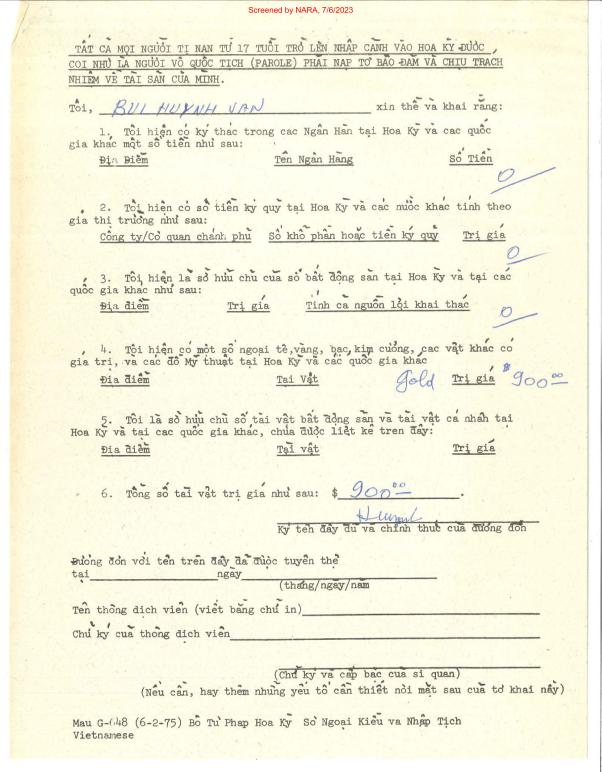 Screened by NARA, 7/6/2023
TẤT CẢ MỌI NGƯỜI TỊ NẠN TỪ 17 TUỔI TRỞ LÊN NHẬP CẢNH VÀO HOA KỲ ĐƯỢC
COI NHƯ LA NGƯỜI VÔ QUỐC TỊCH (PAROLE) PHẢI NẠP TỜ BẢO ĐẢM VÀ CHỊU TRACH
NHIỆM VỀ TÀI SẢN CỦA MÌNH.
Tôi, BUI HUYNH VAN xin thề và khai rằng:
1. Tôi hiện có ký thác trong cac Ngân Hàn tại Hoa Kỳ và cac quốc
gia khác một số tiền như sau:
Địa Điểm Tên Ngân Hàng Số Tiền
0
2. Tôi hiện có số tiền ký quỹ tại Hoa Kỳ và các nước khác tính theo
giá thị trường như sau:
Công ty/Cơ quan chánh phủ Số khổ phần hoặc tiền ký quỹ Trị giá
0
3. Tôi hiện là sở hữu chủ của số bất động sản tại Hoa Kỳ và tại các
quốc gia khác như sau:
Địa điểm Trị giá Tính cả nguồn lợi khai thác
0
4. Tôi hiện có một số ngoại tệ,vàng, bạc,kim cương, cac vật khác có
giá trị, và các đồ Mỹ thuật tại Hoa Kỳ và các quốc gia khác
Địa điểm Tai Vật Gold Trị giá $900.00
5. Tôi là sở hữu chủ số tài vật bất động sản và tài vật cá nhân tại
Hoa Kỳ và tại cac quốc gia khác, chưa được liệt kê tren đây:
Địa điểm Tài vật Trị giá
6. Tổng số tài vật trị giá như sau: $ 900.00.
Ký tên đầy đủ và chính thức của đương đơn
Đương đơn với tên trên đây đã được tuyên thệ
tại ngày
(tháng/ngày/năm
Tên thông dịch viên (viết bằng chữ in)
Chữ ký của thông dịch viên
(Chữ ký và cấp bậc của sĩ quan)
(Nếu cần, hay thêm những yếu tố cần thiết nơi mặt sau của tờ khai nầy)
Mau G-648 (6-2-75) Bộ Tư Pháp Hoa Kỳ Sở Ngoại Kiều va Nhập Tịch
Vietnamese